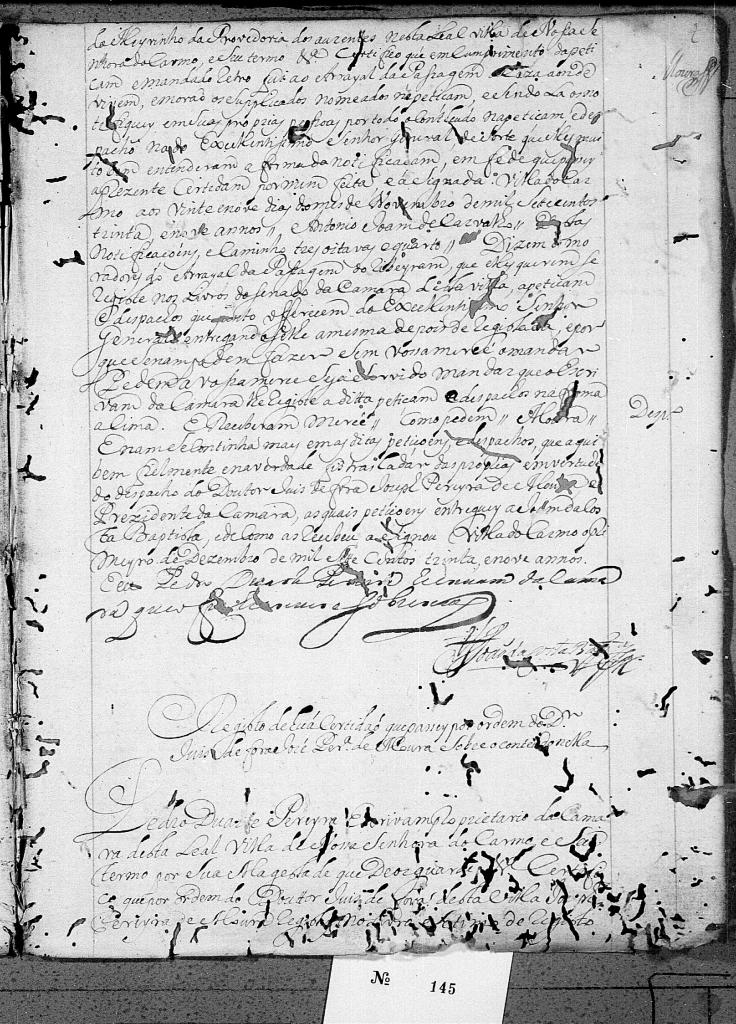 2
Moura
do Meyrinho da Provedoria dos auzentes nesta Leal Villa de Nossa Se
nhora do Carmo, e seu termo &a Certifico que em cumprimento da peti
cam e mandado retro fui ao Arrayal da Passagem a Caza aonde
vivem, e morão os supplicados nomeados na peticam, e sendo lá os no
tefiquey em suas proprias pessoas por todo o contheudo na peticam, e des
pacho nado Excelentissimo Senhor General, de sorte que elles mui
to bem entenderam a forma da noteficacam, em fé de que passey
a prezente Certidam por mim feita e asignada. Villa do Car
mo aos vinte e nove dias do mes de Novembro de mil e sete centos
trinta, e nove annos, e Antonio Joam de Carvalho // Das
Noteficacoens, e Caminho tres oitavas e quarto // Dizem os mo
radores do Arrayal da Passagem do Ribeyram, que elles querem se
registe nos Livros do Senado da Camara desta villa, a peticam
e despachos que junto offerecem do Excelentissimo Senhor
General entregandoselhe a mesma depois de registada, e por
que se nam podem fazer sem vossa merce o mandar
Pedem a vossa merce seja servido mandar que o Escri
vam da Camara lhe registe a ditta peticam e despachos na forma
asima. E Receberam Merce // Como pedem // Moura //
Desp.o
E nam se continha mais em as ditas peticoens, e despachos, que aqui
bem fielmente e na verdade fis trasladar das proprias, em vertude
do despacho do Doutor Juis de fora Joseph Pereyra de Moura e
Prezidente da Camara, as quais peticoens entreguey a Joam da Cos
ta Baptista, e de como as recebeu asignou Villa do Carmo o pri
meyro de Dezembro de mil e sete centos trinta, e nove annos.
Eu Pedro Duarte Pereyra Escrivam da Cama
ra que o fis escrever e sobscrevi
Joam da Costa Bap.ta
Registo de huá Certidaó que passey por ordem do D.r
Juis de fora José Per.a de Moura sobre o contheudo nella
Pedro Duarte Pereyra Escrivam proprietario da Cama
ra desta Leal Villa de Nossa Senhora do Carmo e seu
termo por Sua Magestade que Deos guarde &a Certifi
co que por ordem do Doutor Juis de fora desta Villa Joseph
Pereyra de Moura
No 145